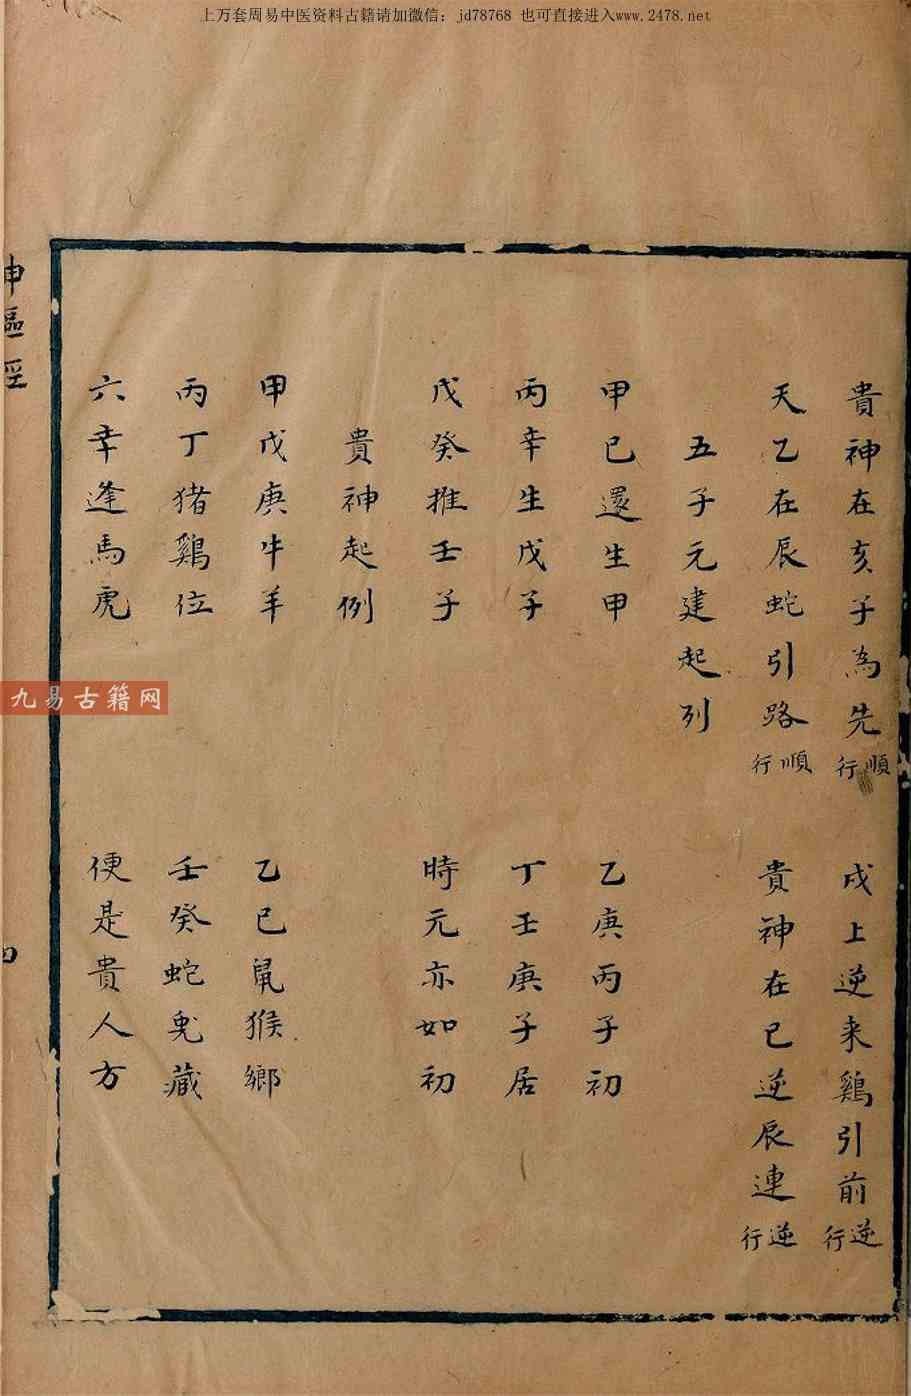 上万套周易中医资料古籍请加微信：jd78768 也可直接进入www.2478.net
貴神在亥子為先順行 戌上逆来鷄引前逆行
天乙在辰蛇引路順行 貴神在巳逆辰連逆行
五子元建起列
甲已還生甲 乙庚丙子初
丙辛生戊子 丁壬庚子居
戊癸推壬子 時元亦如初
貴神起例
甲戊庚牛羊 乙巳鼠猴鄉
丙丁猪鷄位 壬癸蛇兎藏
六辛逢馬虎 便是貴人方
神樞經
四
九易古籍网